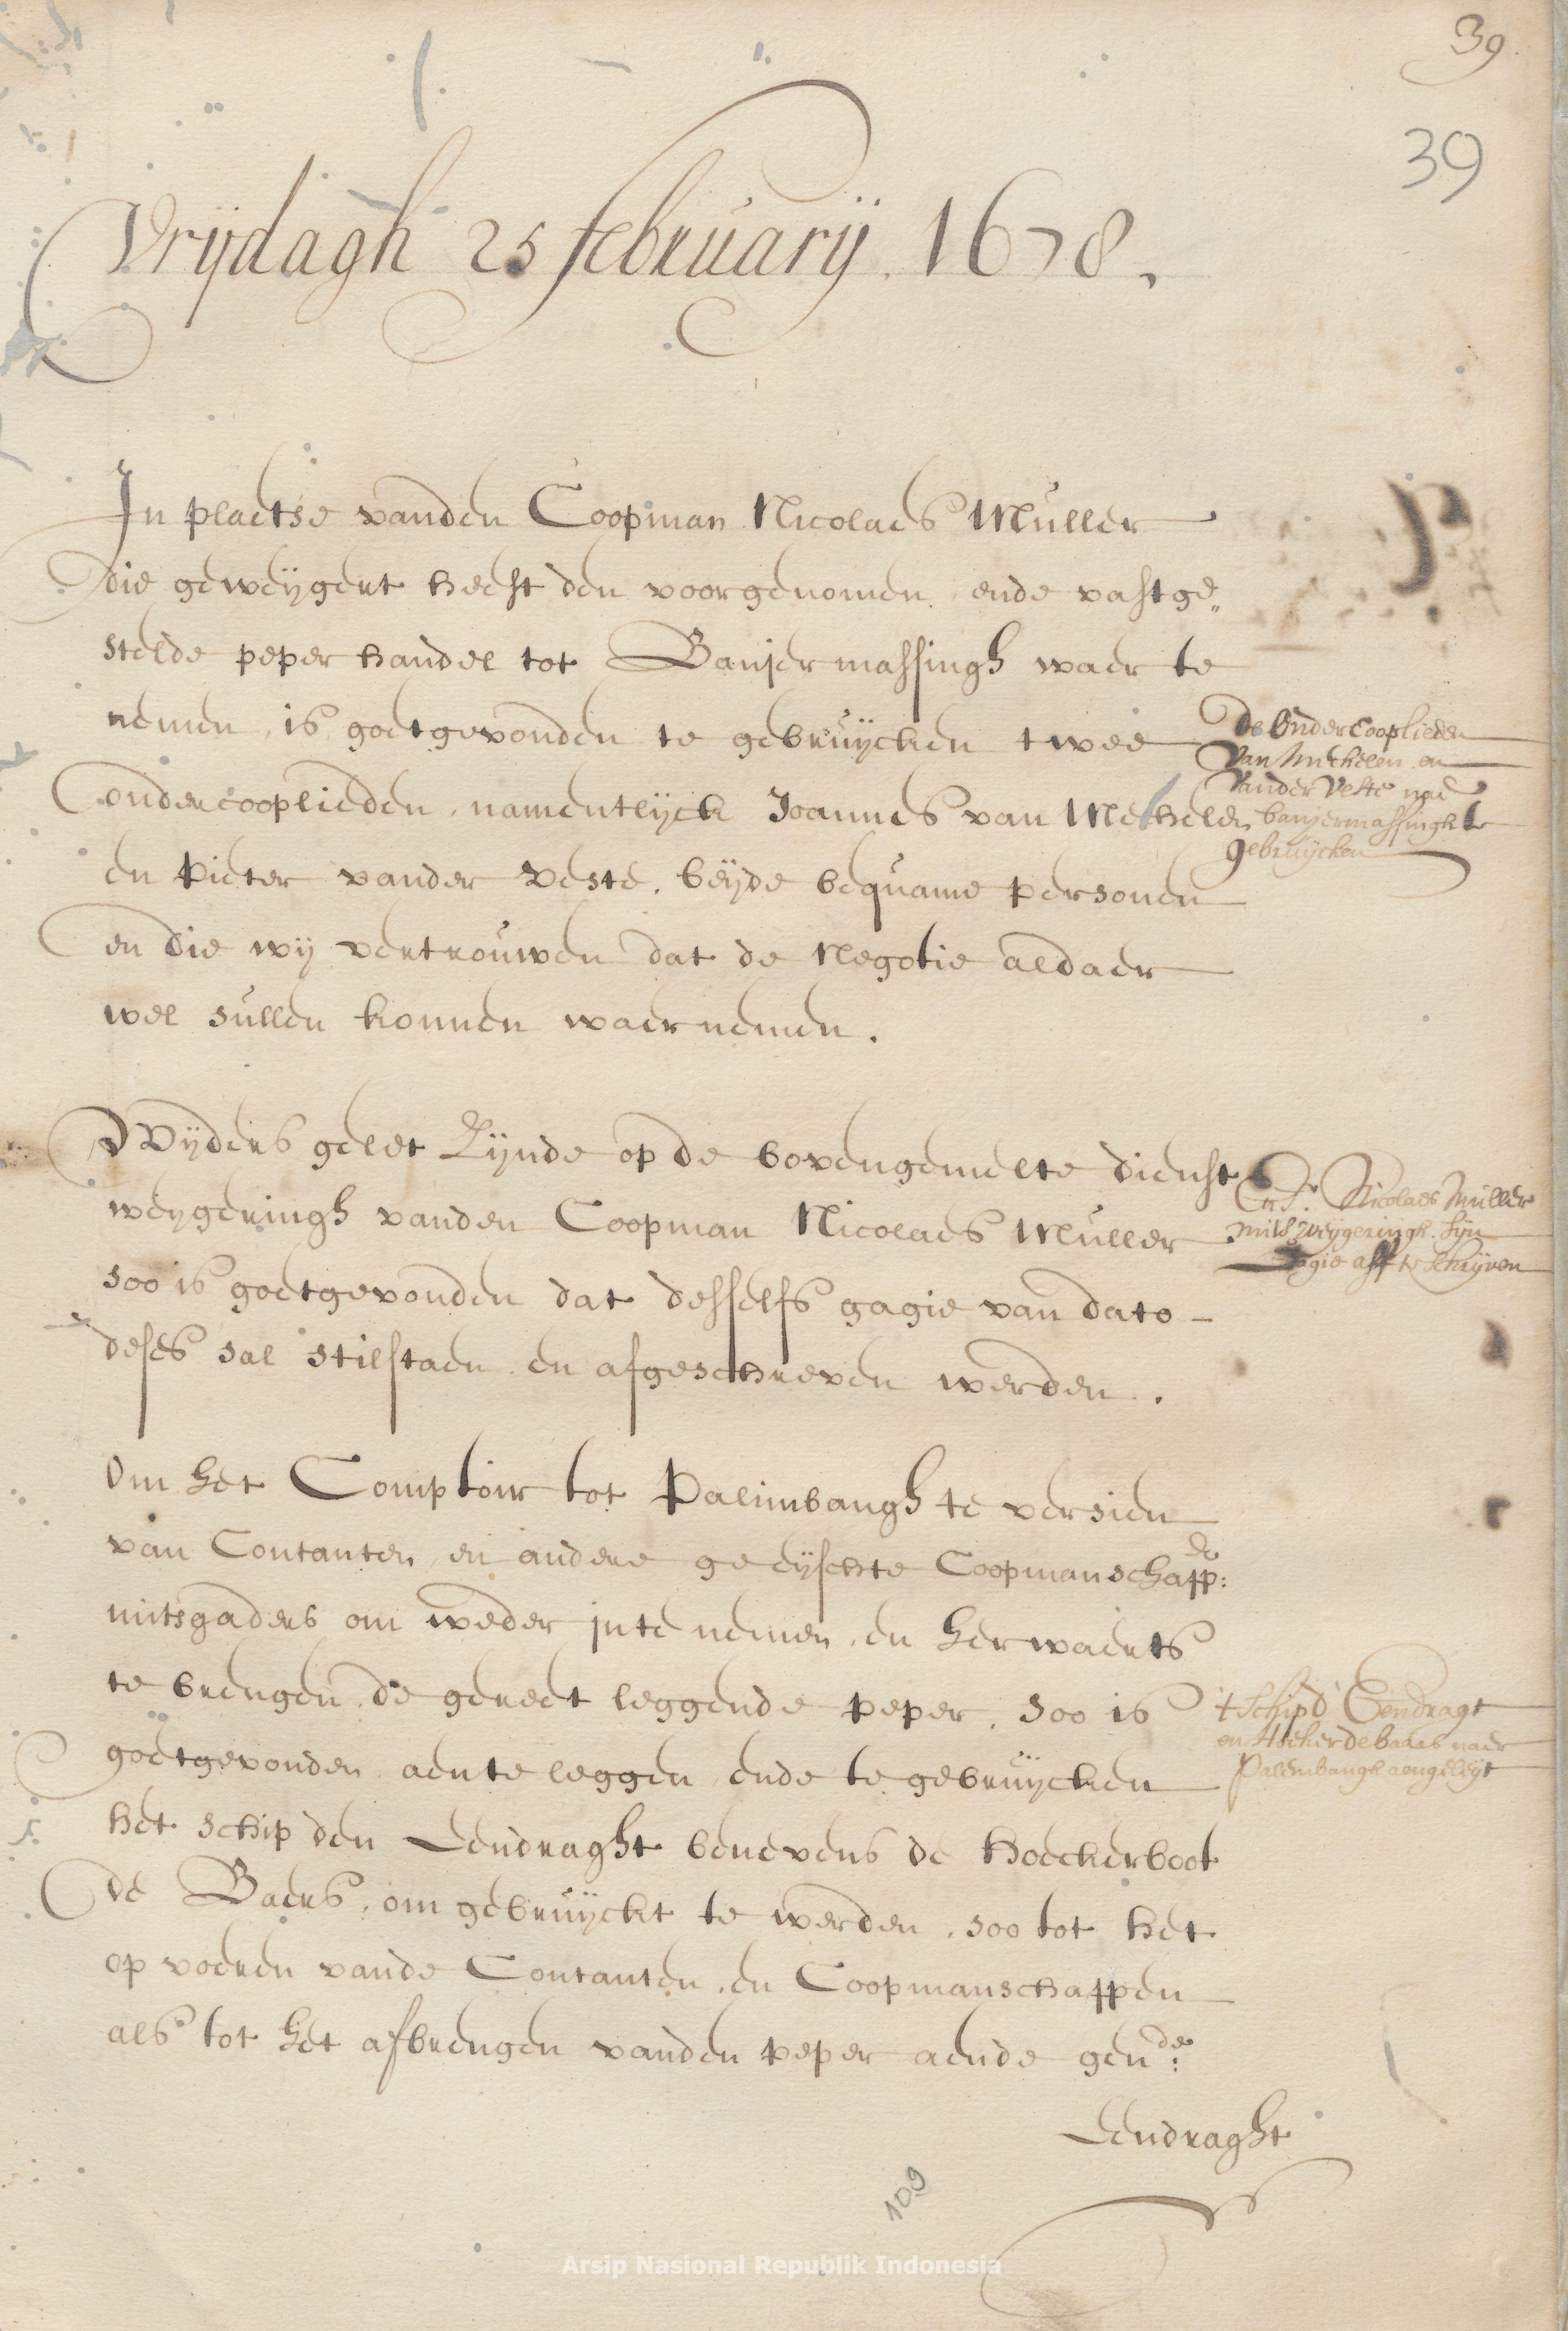 39
39
Vrijdagh 25 februarij. 1678.
In plaetse vanden Coopman Nicolaes Muller
die geweijgert heeft den voorgenomen ende vastge„
stelde peper handel tot Banjermassingh waer te
nemen, is goetgevonden te gebruijcken twee
ondercooplieden, namentlijck Joannes van Mechelen
en Pieter vander Veste, beijde bequame personen
en die wij vertrouwen dat de negotie aldaer
wel sullen konnen waernemen.
De Ondercooplieden
van Mechelen en
vander Veste nae
banjermassingh te
gebruijcken
Wijders gelet zijnde op de bovengemelte dienst
weijgeringh vanden Coopman Nicolaes Muller
soo is goetgevonden dat desselfs gagie van dato
deses sal stilstaen en afgeschreven werden.
En Sr. Nicolaes Muller
mits weijgeringh sijn
gagie aff te schrijven
Om het Comptoir tot Palimbangh te versien
van Contanten en andere geeijschte Coopmanschapp:
mitsgaders om weder inte nemen en herwaerts
te brengen de gereet leggende peper, soo is
goetgevonden aen te leggen ende te gebruijcken
het schip den Eendraght benevens de hoeckerboot
de Baers, om gebruijckt te werden, soo tot het
op voeren vande Contanten en Coopmanschappen
als tot het afbrengen vanden peper aende gende:
't Schip d' Eendragt
en Hoeker de baars naer
Palembangh aengeleijt
Eendraght
109
Arsip Nasional Republik Indonesia